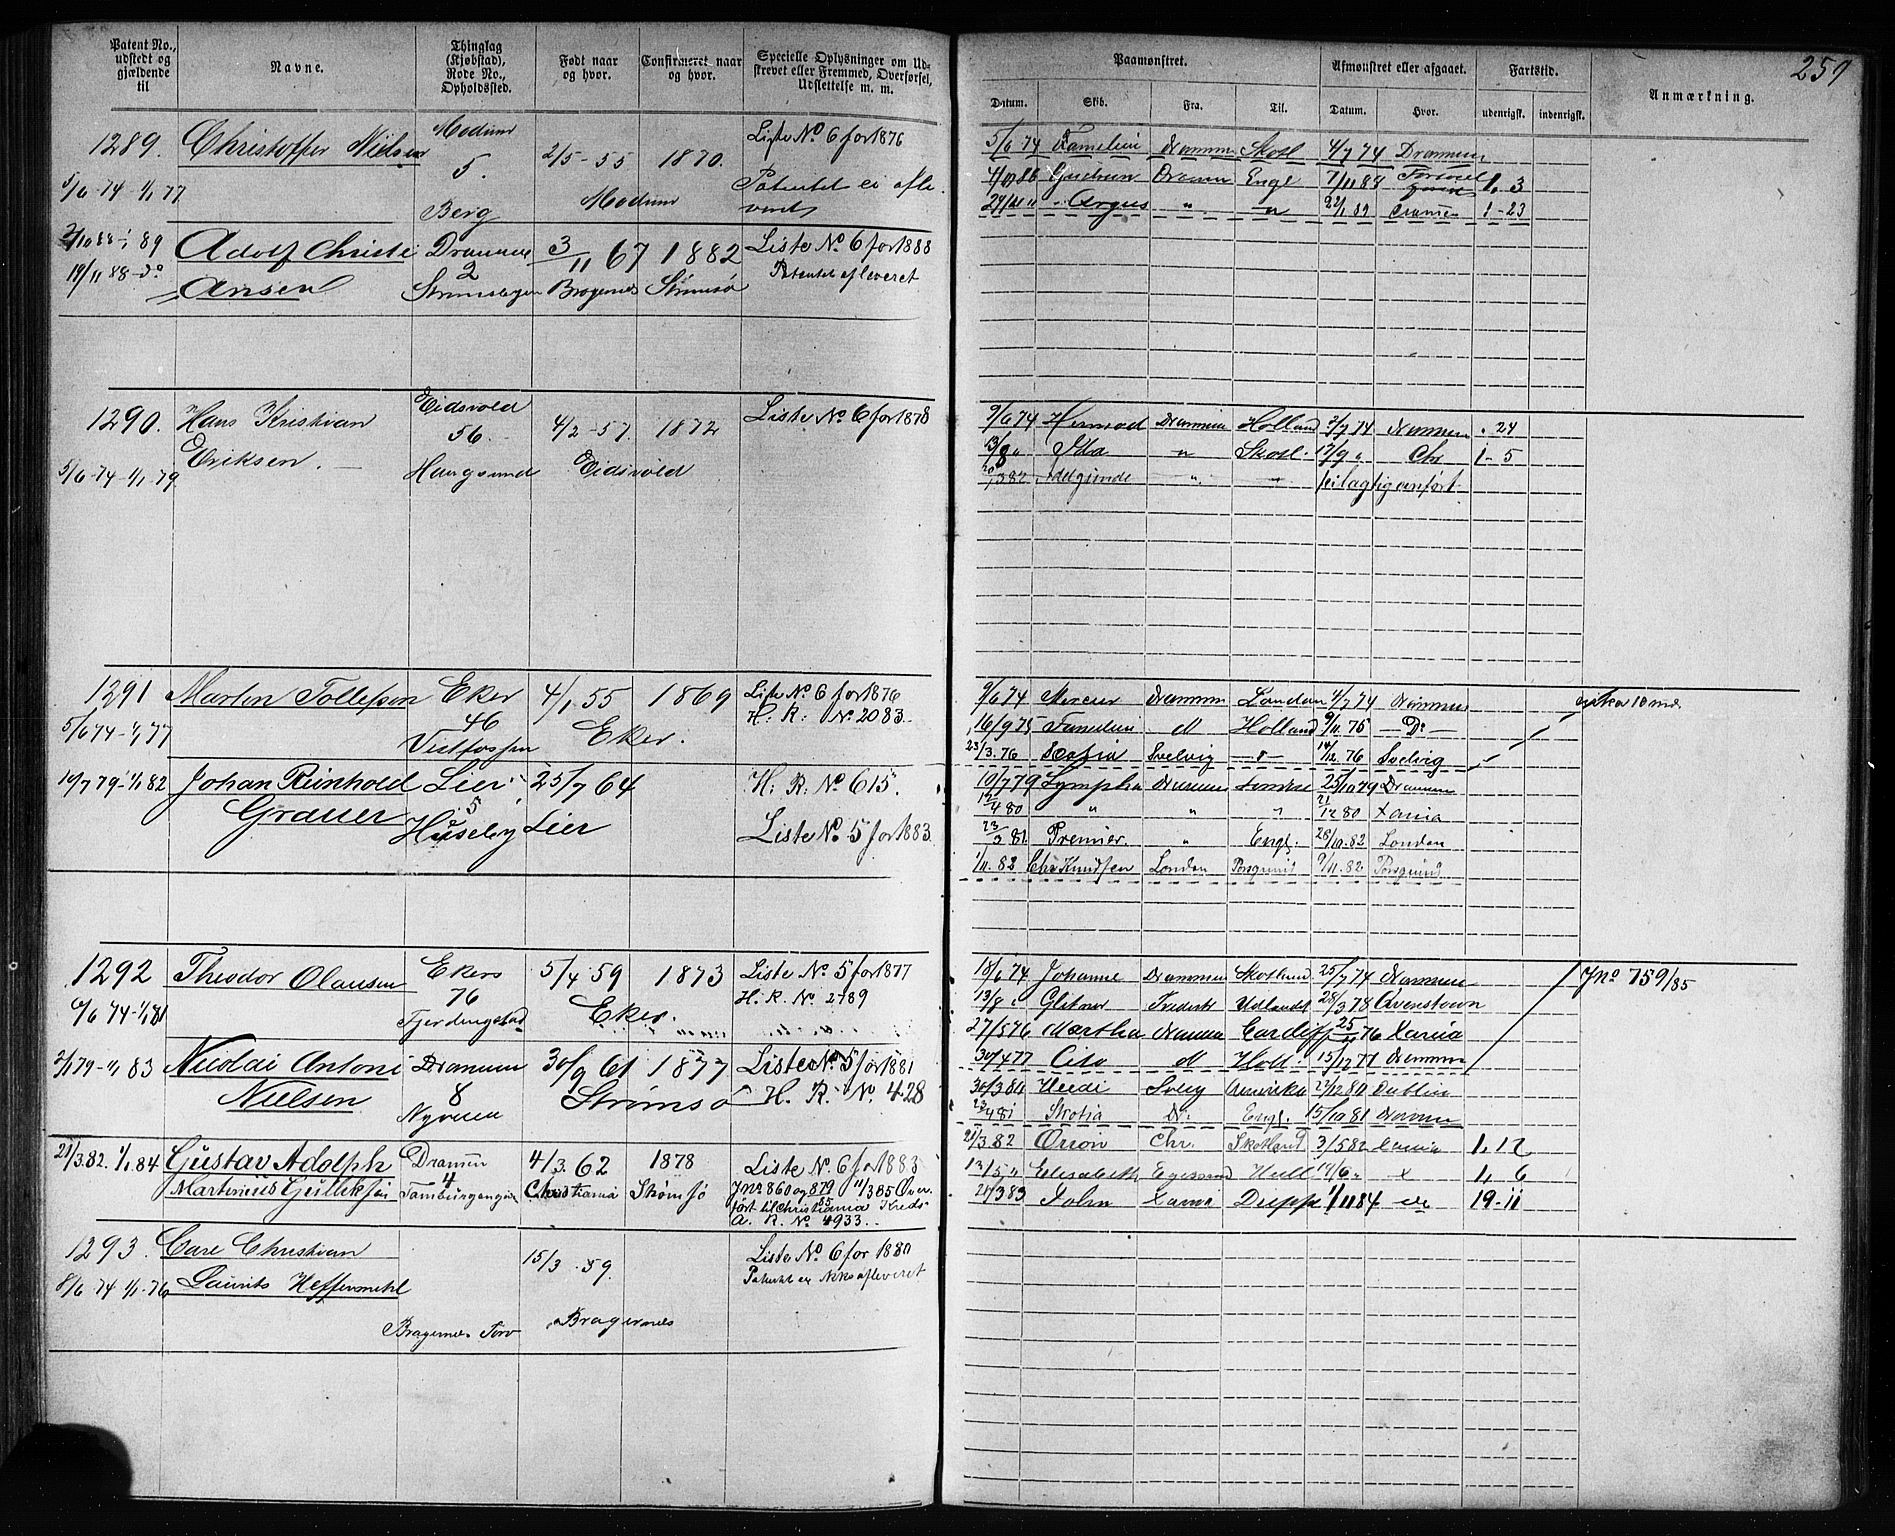 259
Patent No., udstedt og gjældende til
Navne.
Thinglag (Kjøbstad), Rode No., Opholdssted.
Født naar og hvor.
Confirmeret naar og hvor.
Specielle Oplysninger om Udstrevet eller Fremmed, Overførsel, Udslettelse m. m.
Paamønstret.
Datum.
Skib.
Fra.
Til.
Afmønstret eller afgaaet.
Datum.
Hvor.
Fartstid.
udenrigsk.
indenrigsk.
Anmærkning.
1289. Christoffer Nielsen Modum 5. 2/5-55 1870. Liste No 6 for 1876
5/6-74-1/1 77 Berg Modum Patentet ei afleveret
5/6 74 Familien Drammen Skotl 4/7 74 Drammen
Gudrun Drammen Engl 7/11 88 1, 3
Argus " " 22/1 89 Drammen 1-23
89 Adolf Christi Drammen 3/11 67 1882 Liste No. 6 for 1888
19/11 88-do Ansen 2 Bragernes Strømsø Patentet afleveret
1290. Hans Kristian Eidsvold 4/2-57 1872 Liste No 6 for 1878
Eriksen. 56.
5/6-74-1/1-79 Haugsund Eidsvold
9/6 74 Hermod Drammen Holland 2/7 74 Drammen . 24
13/8 " Ida " Skotl. 17/9 " Chr 1-5
Adelgunde " feilagtig anført.
1291 Martin Tollefsen Eker 4/1 55 1869 Liste No. 6 for 1876
5/6 74-1/1 77 46 H: R: No. 2083.
Vestfossen Eker.
9/6 74 Mercur Drammen London 4/7 74 Drammen cirka 10 md.
16/9 75 Familien Holland 9/11 75 Do
23/3. 76 Svelvig 14/12 76 Svelvig
19/7 79-1/1 82 Johan Reinhold Lier 25/7 64 H. R. No 615.
Grauer 5 Huseby Lier Liste No 5 for 1883.
19/7 79 Lympha Drammen 25/10 79 Drammen
12/4 80 " " " 21/12 80 Xania
23/3 81 Premier. " Engl. 28/10. 82 London
1/11. 82 Chr Knudsen London Porsgrund 9/11. 82 Porsgrund
1292 Theodor Olausen Ekers 5/4 59 1873 Liste No. 5 for 1877
76 H. R. No 2789
Fjerdingstad Eker.
18/6 74 Johanne Drammen Skotland 25/7 74 Drammen Jno 759/85
13/8 " Glitner 28/3 78 Qvenstown
27/5 76 Martha Drammen Cardiff 25 76 Xania
30/4 77 Cito Holl. 15/12 77 Drammen
2/1 79-1/1 83 Nicolai Antoni Drammen 30/9 61 1877 Liste No. 5 for 1881
Nielsen 8 Strømsø H. R. No. 428
30/3 80 Heedi Amerika Dublin
23/4 81 Skotia Do: Engl. 15/10 81 Drammen
21/3.82. 1/1 84 Gustav Adolph Drammen 4/3. 62 1878 Liste No. 6 for 1883.
Martinius Gulliksen 4 Christiania Strømsø Jno 860 og 879 11/3 85 Over-
ført til Christiania Kreds
A. R. No. 4933.
21/3.82 Orion Chr. Skotland 3/5 82 Xania 1, 12
13/5 " Elisabeth Egersund Hull 14/6 " x 1, 6
21/3 83 John Xania Dieppe 1/1 84 do 19-11
1293. Carl Christian 15/3. 59. Liste No. 6 for 1880
8/6-74-1/1-76 Laurits Heffermehl Patentet ei afleveret
Bragernes Torv Bragernes